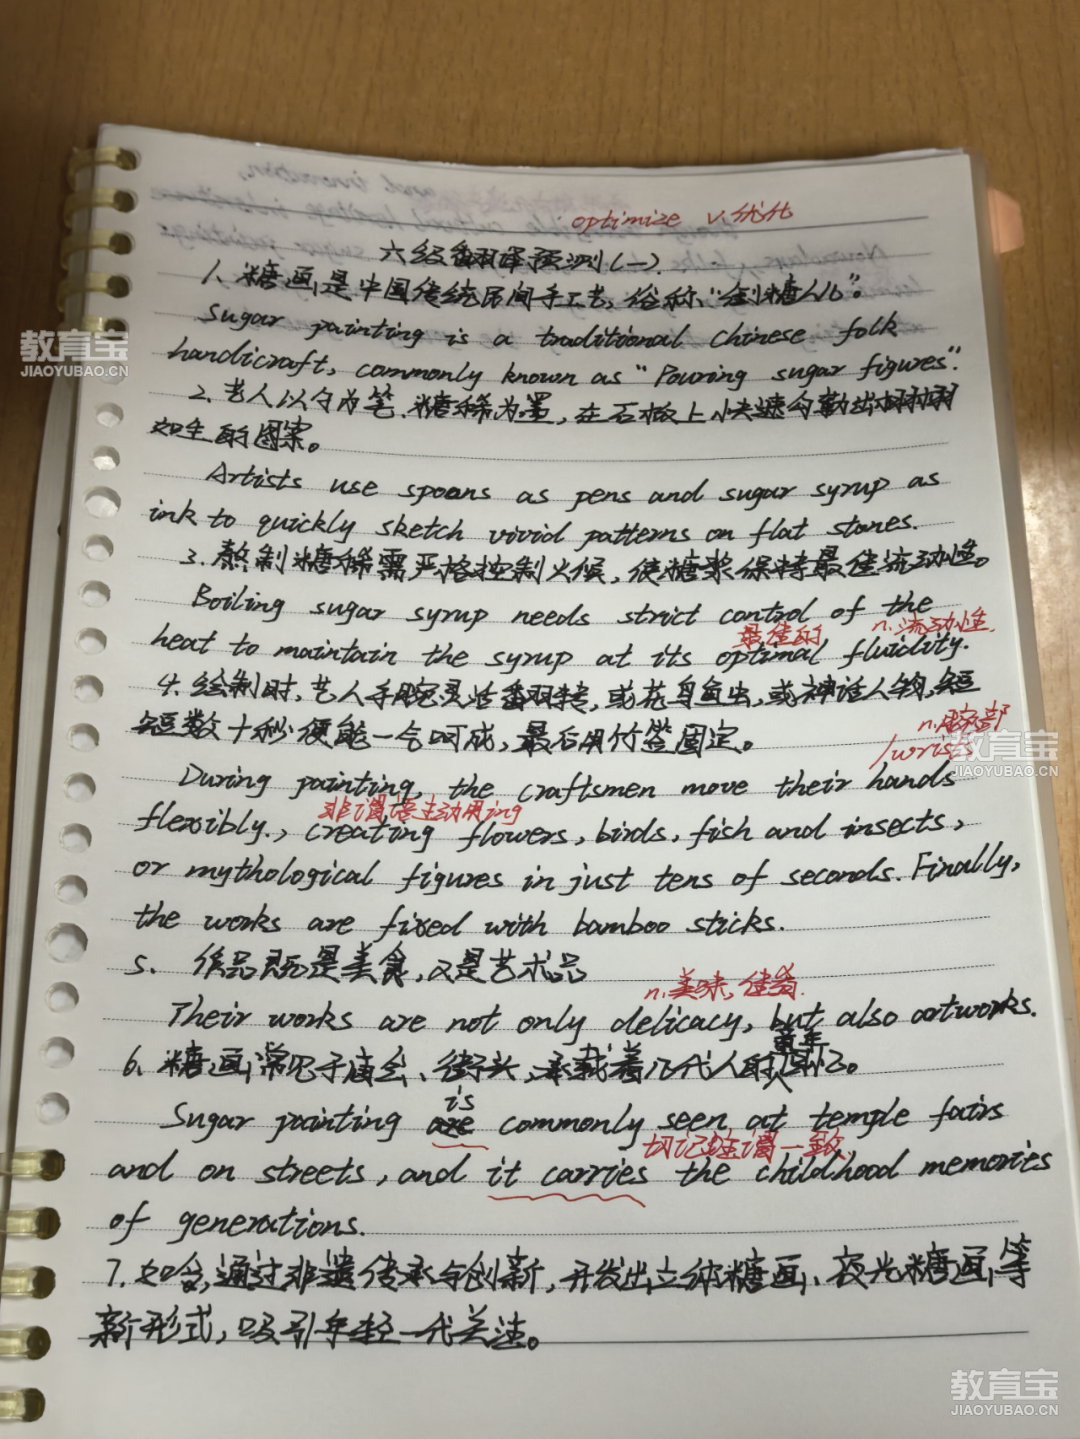 optimize v.优化
六级翻译预测(一).
1. 糖画是中国传统民间手工艺, 俗称“倒糖人儿”。
Sugar painting is a traditional Chinese folk
handicraft, commonly known as “Pouring sugar figures”.
2. 艺人以勺为笔、糖稀为墨, 在石板上快速勾勒出栩栩
如生的图案。
Artists use spoons as pens and sugar syrup as
ink to quickly sketch vivid patterns on flat stones.
3. 熬制糖稀需严格控制火候, 使糖浆保持最佳流动性。
Boiling sugar syrup needs strict control of the
最佳的 n.流动性.
heat to maintain the syrup at its optimal fluidity.
4. 绘制时, 艺人手腕灵活翻转, 或花鸟鱼虫, 或神话人物, 短
短数十秒便能一气呵成, 最后用竹签固定。
n.腕部
/wrists
During painting, the craftsmen move their hands
非谓语主动用ing
flexibly., creating flowers, birds, fish and insects,
or mythological figures in just tens of seconds. Finally,
the works are fixed with bamboo sticks.
5. 作品既是美食, 又是艺术品
n.美味, 佳肴.
Their works are not only delicacy, but also artworks.
童年
6、糖画常见于庙会、街头, 承载着几代人的回忆。
is
Sugar painting are commonly seen at temple fairs
切记主谓一致
and on streets, and it carries the childhood memories
of generations.
7. 如今, 通过非遗传承与创新, 开发出立体糖画、夜光糖画等
新形式, 吸引年轻一代关注。
教育宝
JIAOYUBAO.CN
教育宝
JIAOYUBAO.CN
教育宝
JIAOYUBAO.CN